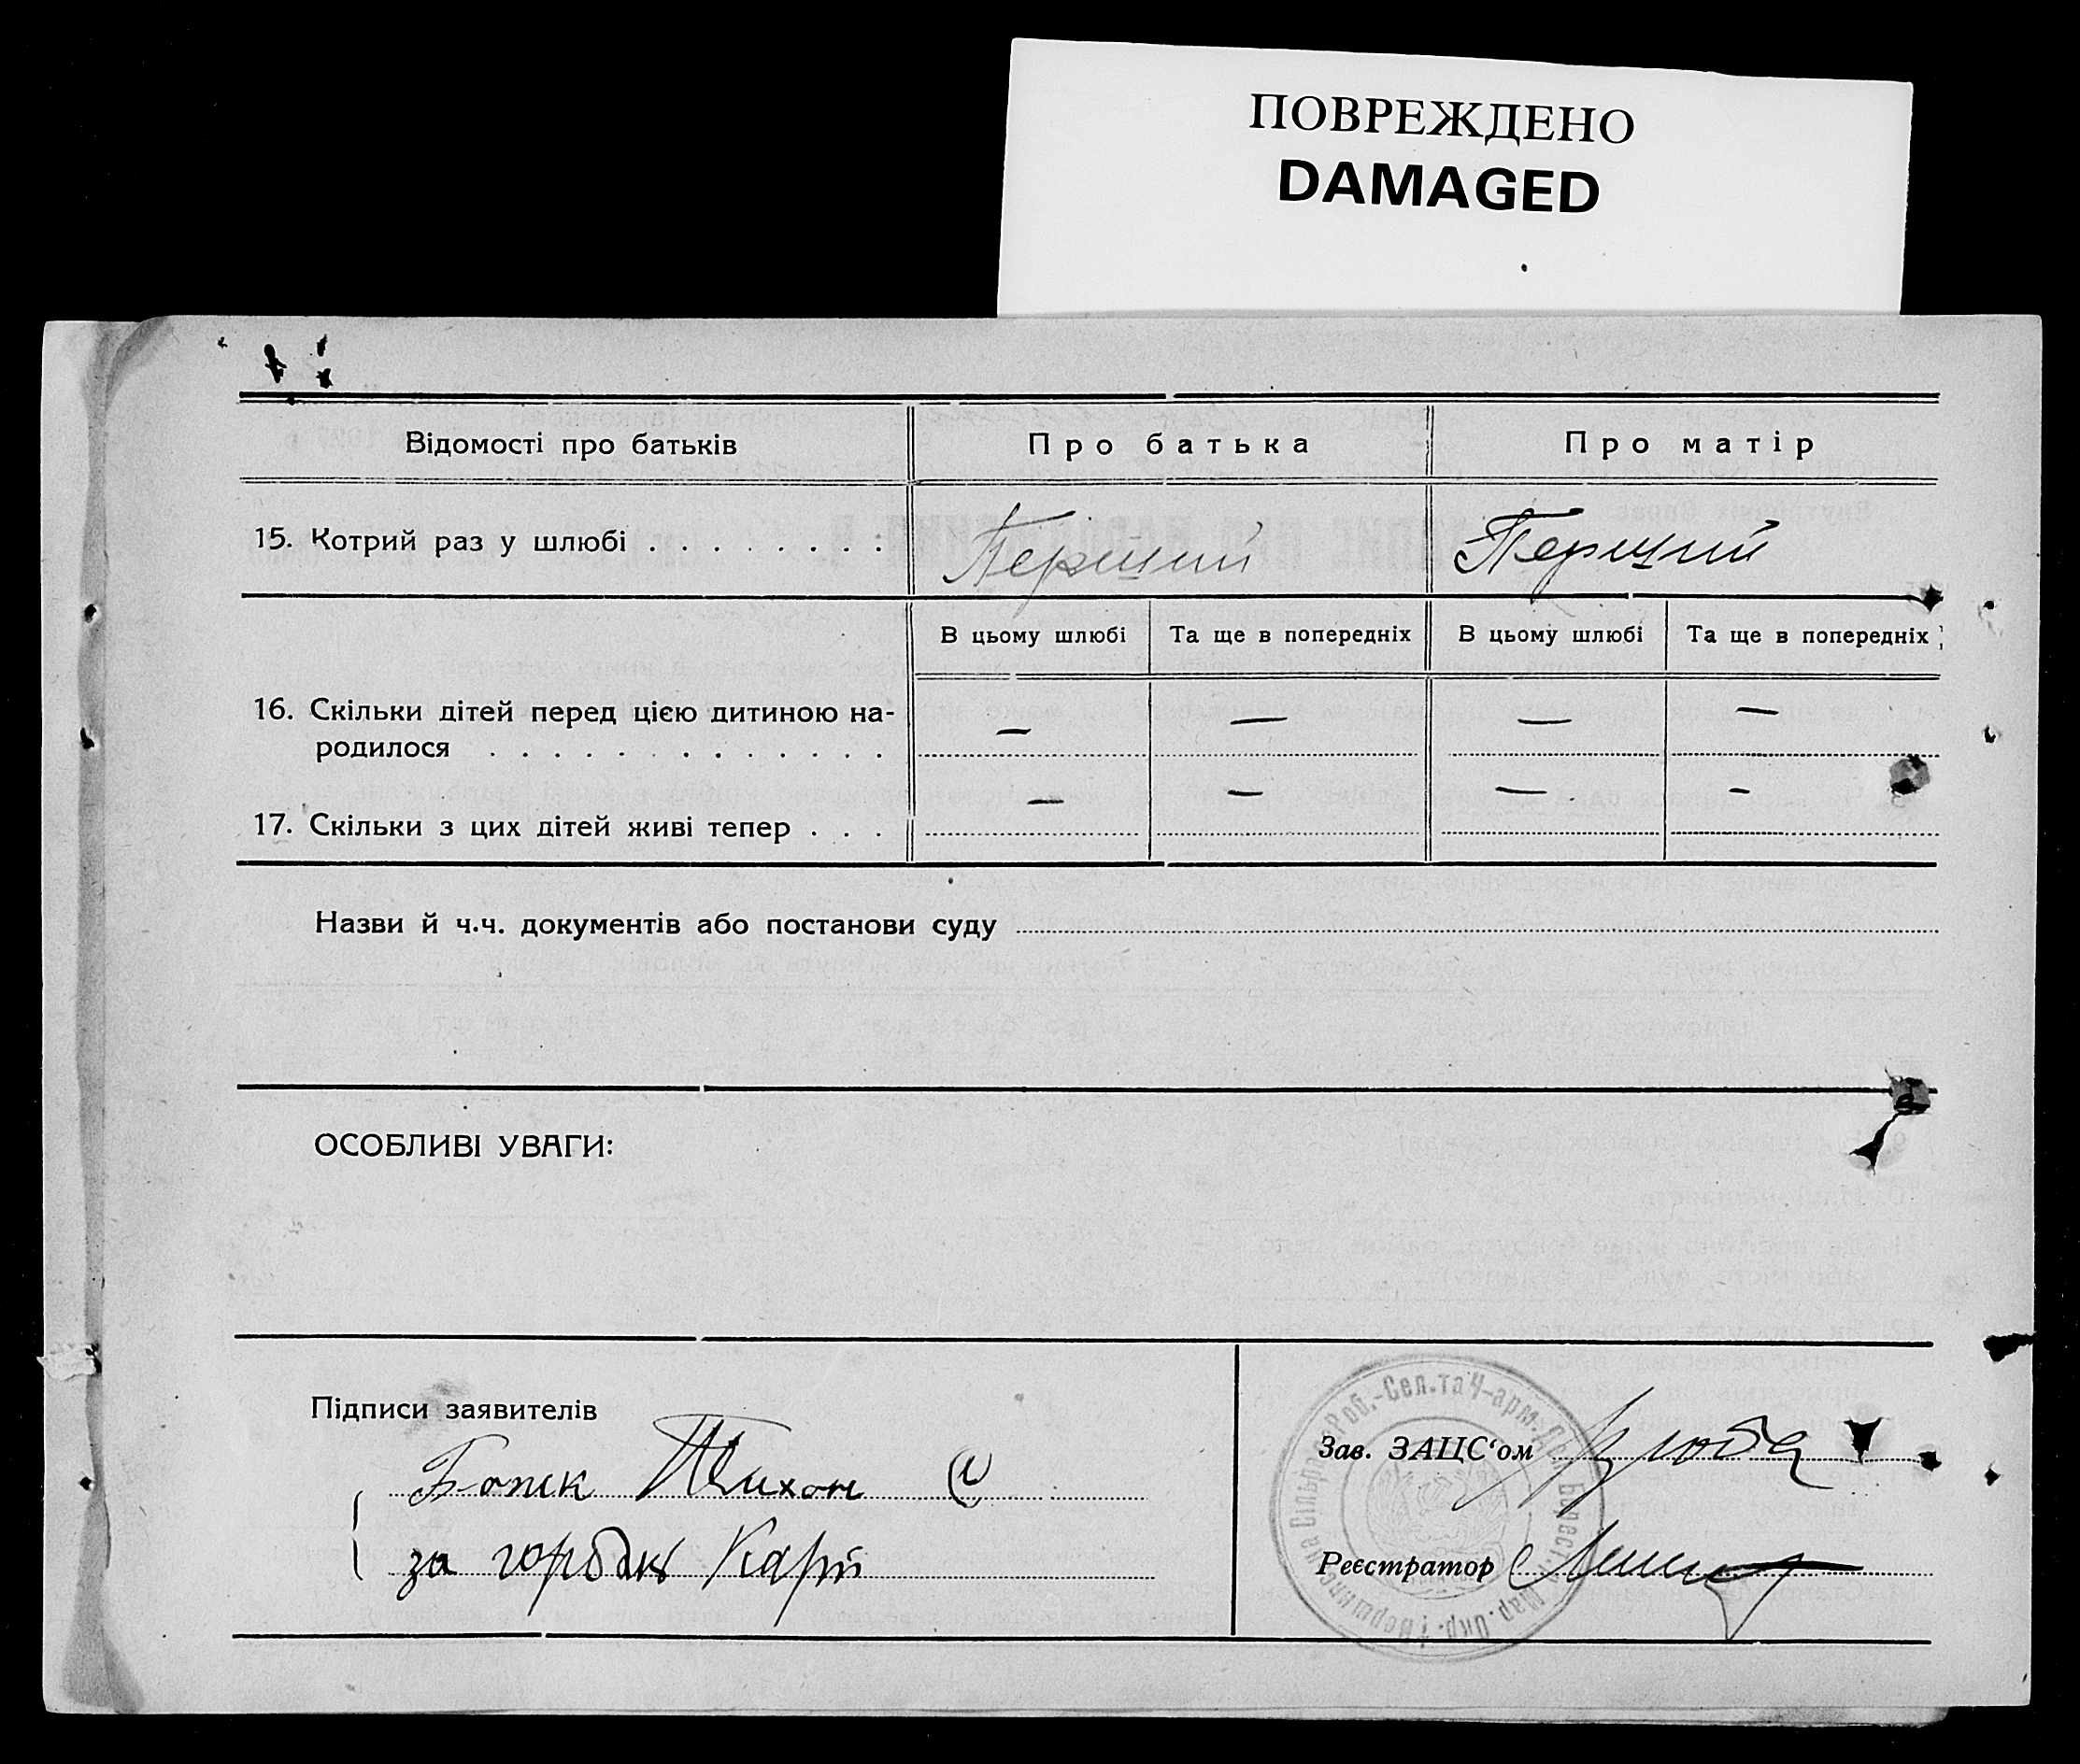 ПОВРЕЖДЕНО
DAMAGED
Відомості про батьків
Про батька
Про матір
15. Котрий раз у шлюбі . . . . . . . .
Перший
Перший
В цьому шлюбі
Та ще в попередніх
В цьому шлюбі
Та ще в попередніх
16. Скільки дітей перед цією дитиною на-
родилося . . . . . . . . . . . . .
— — — —
17. Скільки з цих дітей живі тепер . . .
— — — —
Назви й ч.ч. документів або постанови суду
ОСОБЛИВІ УВАГИ:
Підписи заявителів
Тихон
за
Зав. ЗАЦС‘ом
Реєстратор
Роб.-Сел.та Ч-арм.